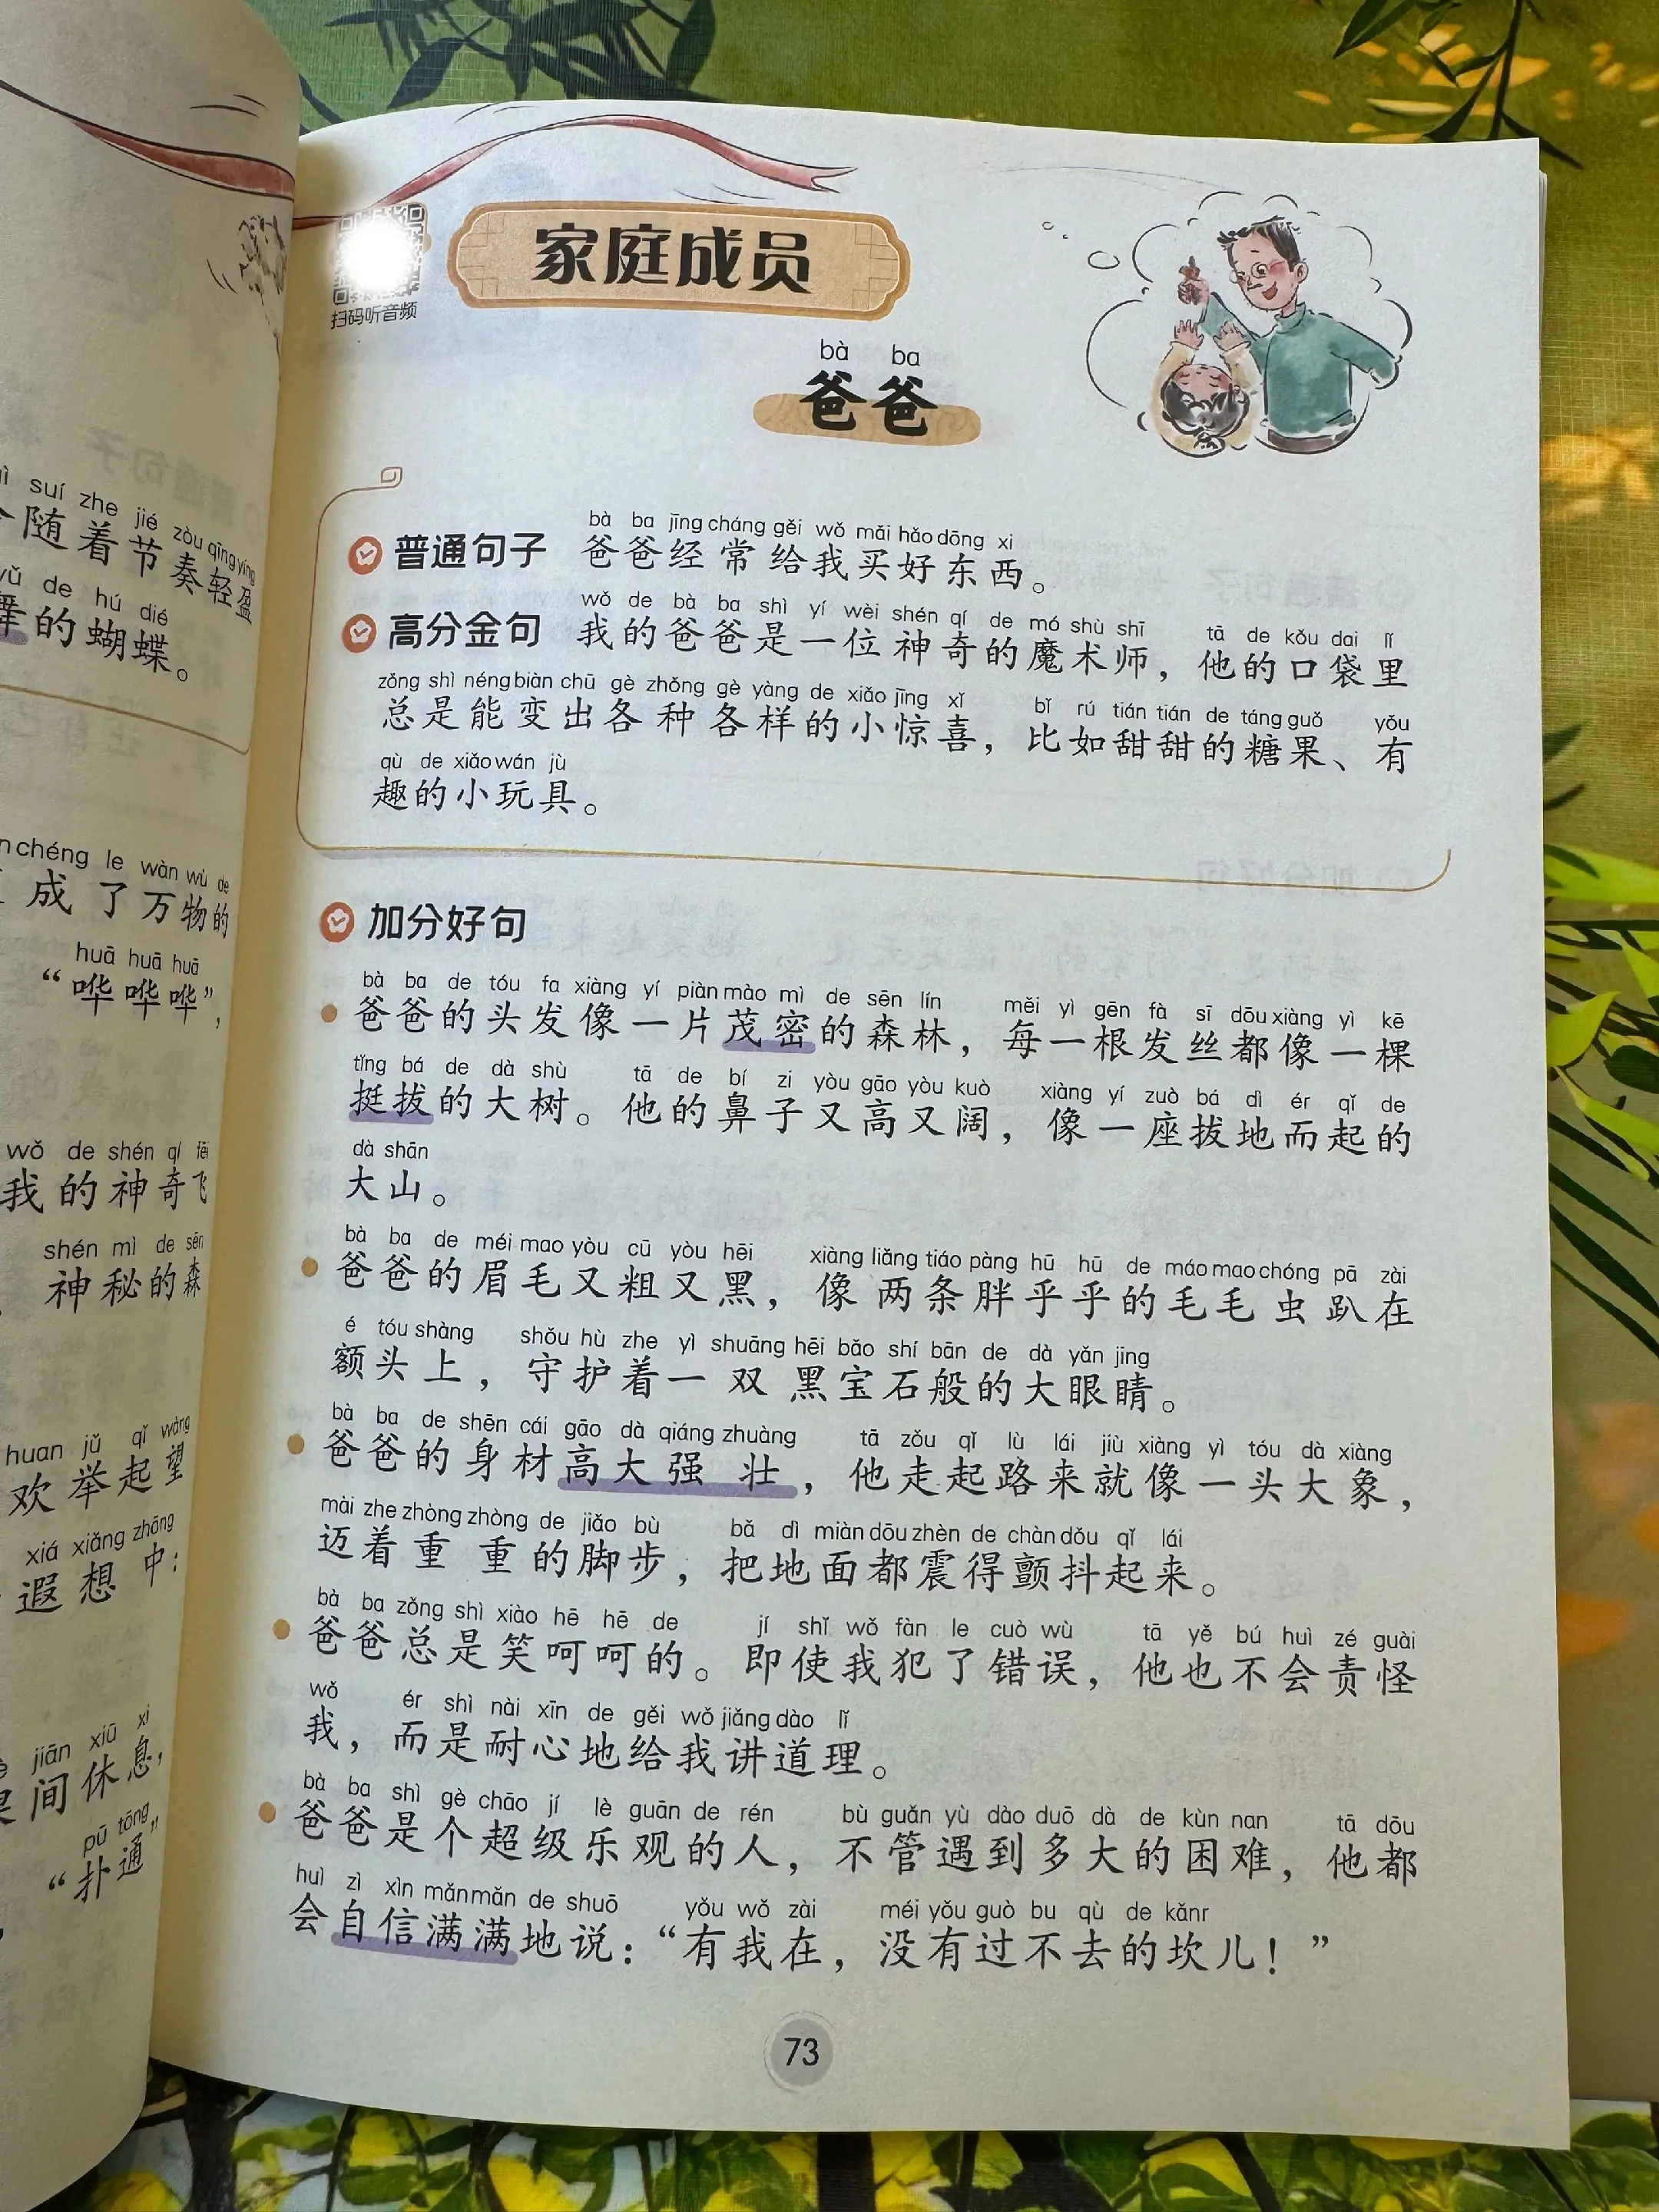 suí zhe jié zòu qīng yíng
随着节奏轻盈
de hú dié
的蝴蝶。
chéng le wàn wù de
成了万物的
huā huā huā
“哗哗哗”,
wǒ de shén qí fēi
我的神奇飞
shén mì de sēn
神秘的森
huan jǔ qǐ wàng
欢举起望
xiá xiǎng zhōng
遐想中:
jiān xiū xi
间休息,
pū tōng
“扑通”
扫码听音频
家庭成员
bà ba
爸爸
bà ba jīng cháng gěi wǒ mǎi hǎo dōng xi
普通句子 爸爸经常给我买好东西。
wǒ de bà ba shì yí wèi shén qí de mó shù shī tā de kǒu dai lǐ
高分金句 我的爸爸是一位神奇的魔术师，他的口袋里
zǒng shì néng biàn chū gè zhǒng gè yàng de xiǎo jīng xǐ bǐ rú tián tián de táng guǒ yǒu
总是能变出各种各样的小惊喜，比如甜甜的糖果、有
qù de xiǎo wán jù
趣的小玩具。
加分好句
bà ba de tóu fa xiàng yí piàn mào mì de sēn lín měi yì gēn fà sī dōu xiàng yì kē
爸爸的头发像一片茂密的森林，每一根发丝都像一棵
tǐng bá de dà shù tā de bí zi yòu gāo yòu kuò xiàng yí zuò bá dì ér qǐ de
挺拔的大树。他的鼻子又高又阔，像一座拔地而起的
dà shān
大山。
bà ba de méi mao yòu cū yòu hēi xiàng liǎng tiáo pàng hū hū de máo mao chóng pā zài
爸爸的眉毛又粗又黑，像两条胖乎乎的毛毛虫趴在
é tóu shàng shǒu hù zhe yì shuāng hēi bǎo shí bān de dà yǎn jing
额头上，守护着一双黑宝石般的大眼睛。
bà ba de shēn cái gāo dà qiáng zhuàng tā zǒu qǐ lù lái jiù xiàng yì tóu dà xiàng
爸爸的身材高大强壮，他走起路来就像一头大象，
mài zhe zhòng zhòng de jiǎo bù bǎ dì miàn dōu zhèn de chàn dǒu qǐ lái
迈着重重的脚步，把地面都震得颤抖起来。
bà ba zǒng shì xiào hē hē de jí shǐ wǒ fàn le cuò wù tā yě bú huì zé guài
爸爸总是笑呵呵的。即使我犯了错误，他也不会责怪
wǒ ér shì nài xīn de gěi wǒ jiǎng dào lǐ
我，而是耐心地给我讲道理。
bà ba shì gè chāo jí lè guān de rén bù guǎn yù dào duō dà de kùn nan tā dōu
爸爸是个超级乐观的人，不管遇到多大的困难，他都
huì zì xìn mǎn mǎn de shuō yǒu wǒ zài méi yǒu guò bu qù de kǎnr
会自信满满地说：“有我在，没有过不去的坎儿！”
73